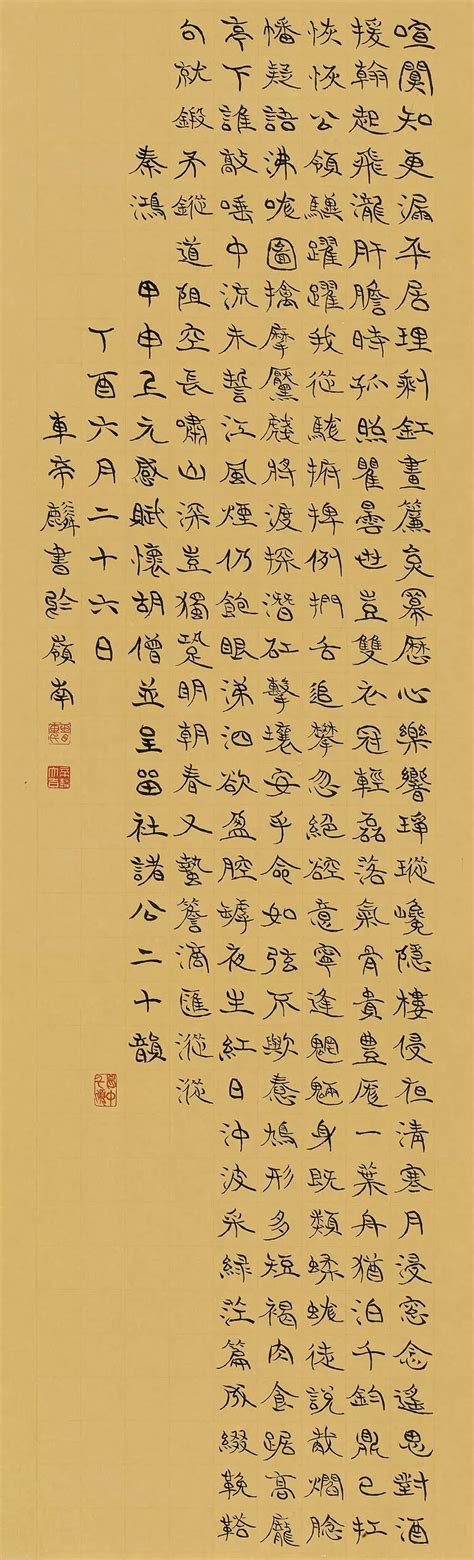 喧闐知更漏平居理剩釭畫簾哀冪歷心樂響琤瑽巉隱樓侵夜清寒月浸窓念遙思對酒
援翰起飛瀧肝膽時孤照瞿曇世豈雙衣冠輕磊落氣骨貴豊厖一葉舟猶泊千鈞鼎已扛
恢恢公領驥躍躍我從駹捬捭例捫舌追攀忽絕意寧逢魍魎身既類蝚蛖徒說燗腍
幡疑語沸哤圖擒摩魘將渡探潛矼擊壤安乎命如弦不歟惷鳩形多短褐肉食踞高龐
亭下誰敲唾中流未誓江風煙仍飽眼涕泗欲盈腔罅夜生紅日沖波采綠茳篇成綴鞔鞳
句就鍛矛鏦道阻空長嘯山深豈獨跫明朝春又蟄簷滴匯漎漎
秦鴻 甲申上元感賦懷胡僧並呈畱社諸公二十韻
丁酉六月二十六日
車帝麟書於嶺南